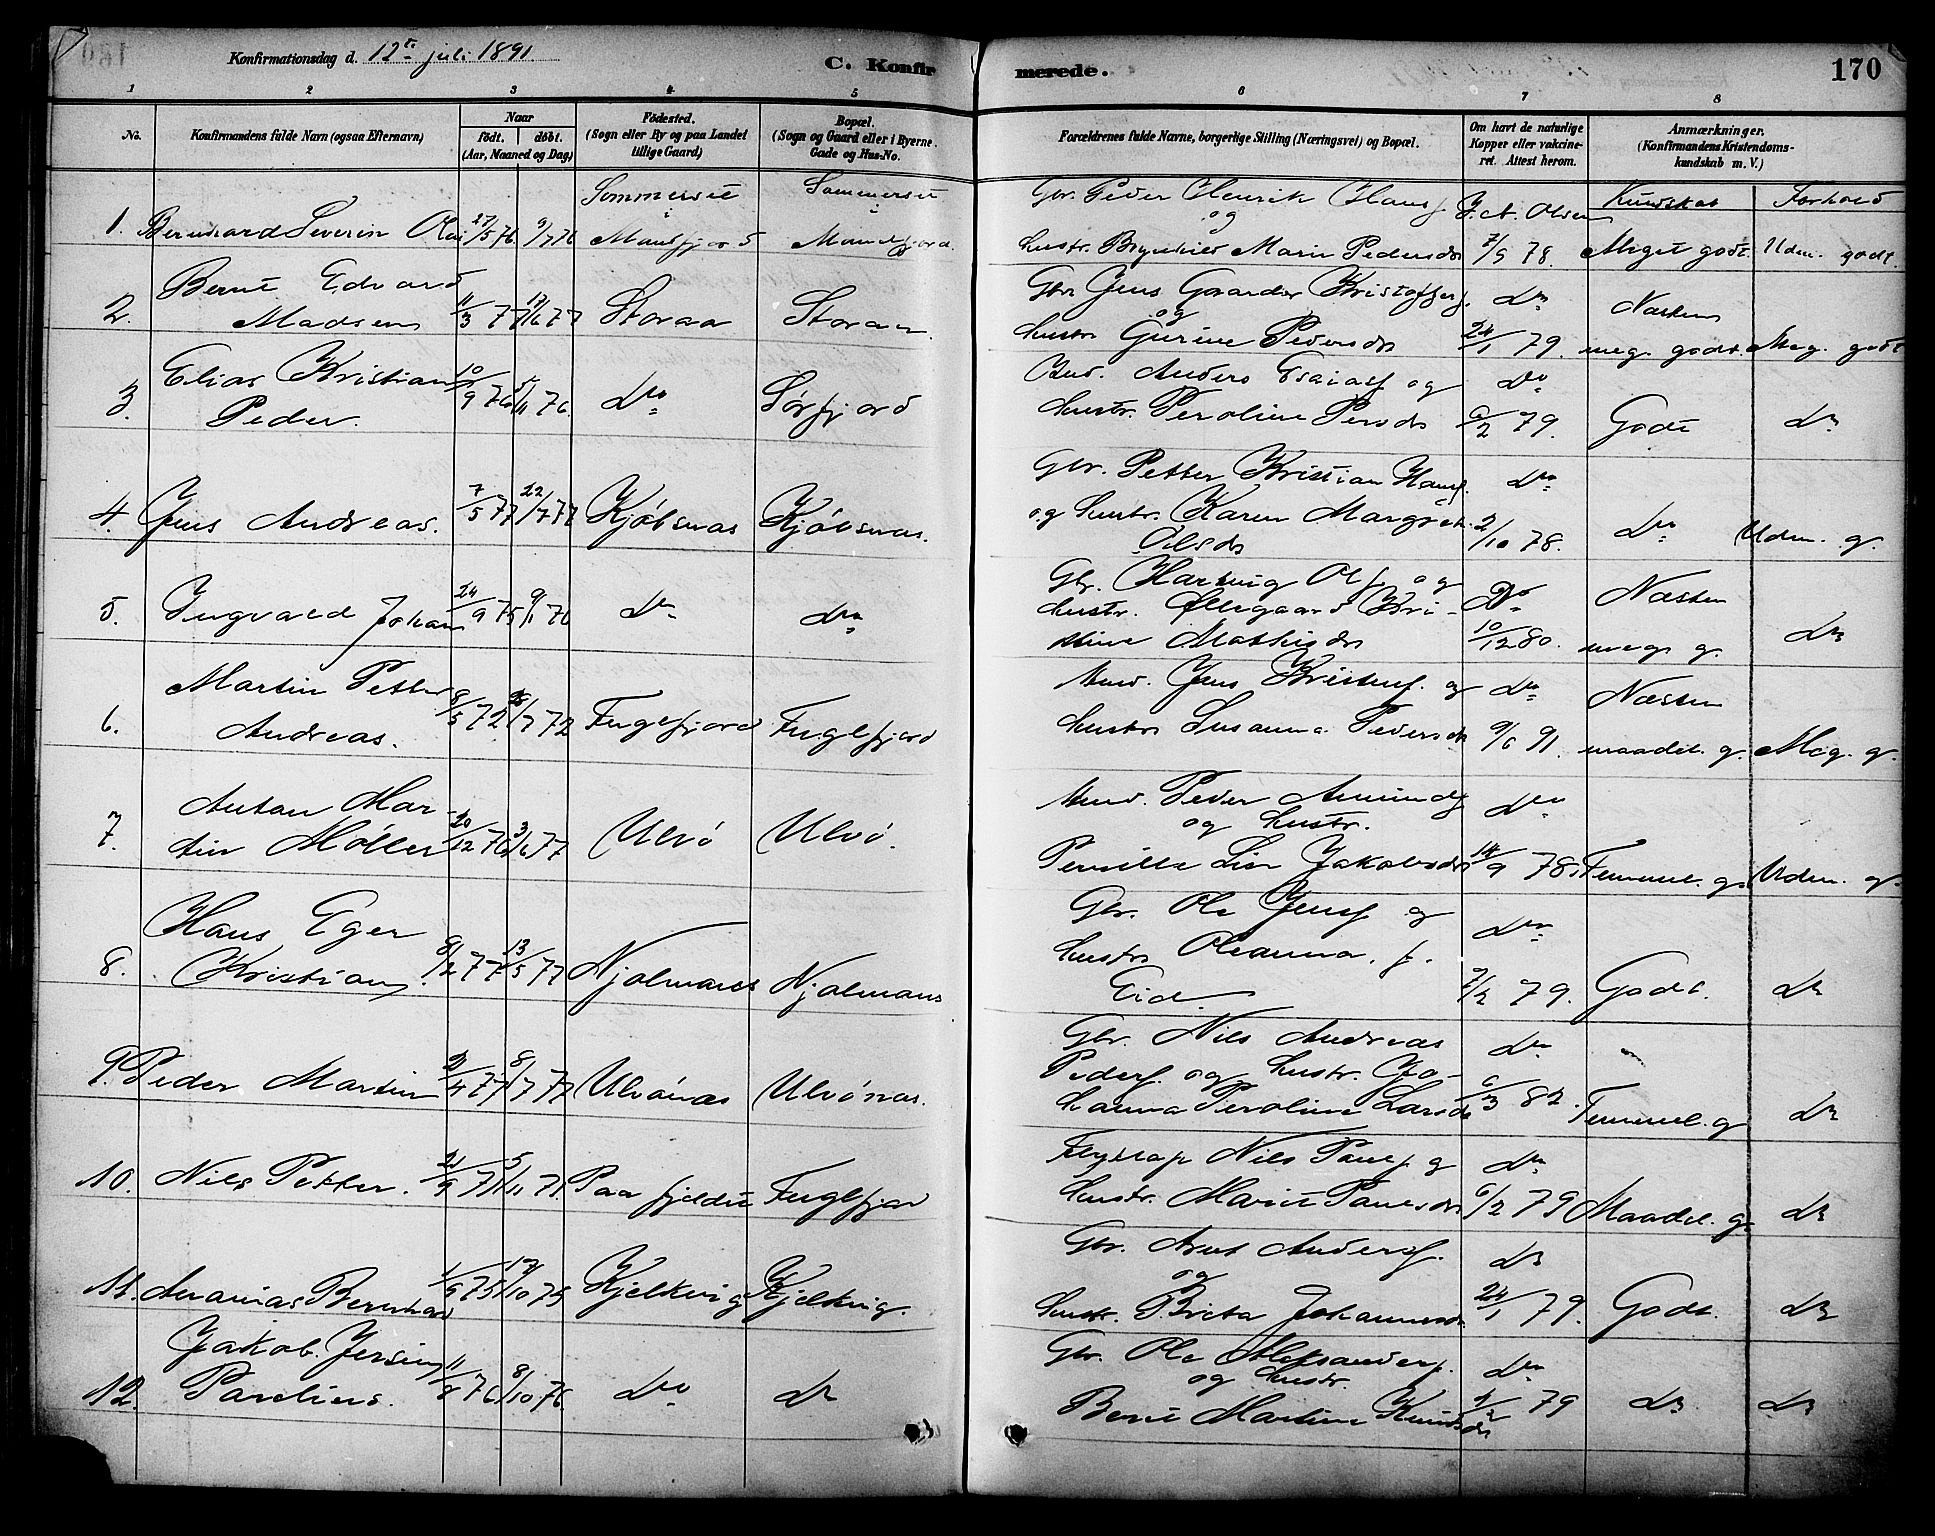 Konfirmationsdag d. 12te juli 1891. C. Konfirmerede. 170
1 2 3 4 5 6 7 8
No. Konfirmandens fulde Navn (ogsaa Efternavn) Naar født. døbt. (Aar, Maaned og Dag) Fødested. (Sogn eller By og paa Landet tillige Gaard) Bopæl. (Sogn og Gaard eller i Byerne Gade og Hus-No. Forældrenes fulde Navne, borgerlige Stilling (Næringsvei) og Bopæl. Om havt de naturlige Kopper eller vakcineret. Attest herom. Anmærkninger. (Konfirmandens Kristendomskundskab m. V.)
Sommerset Sommerset Gbr. Peder Henrik Hansf. J. A. Olsen Kundskab Forhold
1. Bernhard Severin Olai 27/5 76 9/7 76 Mansfjord Mansfjord og
hustr. Marie Pedersdr 7/9 78. Meget godt. Udm. godt.
2. Bernt Edvard Madsen 11/3 77 17/6 77 Storaa Storaa. Gbr Jens Kristoffersf. og do Næsten
hustr. Gurine Pedersdr 24/1 79. meg. godt. Meg. godt
3. Elias Kristian Peder. 10/9 76 5/11 76. do Sørfjord Anders Esaiasf og do
hustr. Peroline Persdr 6/2 79. Godt do
4. Jens Andreas. 7/5 77 22/7 77 Kjøbsnæs Kjøbsnæs. Gbr. Petter Kristian Hansf. do
og hustr. Karen Margret. Olsdr 2/10 78. do Udm. g.
5. Ingvald Johan 24/9 75 9/1 76 do do Gbr. Hartvig Olsf. og do Næsten
hustr. Ellegaard Kristine Mathisdr 10/12 80. meg. g. do
6. Martin Petter Andreas. 8/5 72 28/7 72 Fuglfjord Fuglfjord Jens Kristensf. og do Næsten
hustr Susanna Pedersdr 9/6 91 maadel. g. Meg. g.
7. Anton Martin Møller 20/12 76 3/6 77 Ulvø Ulvø. Peder Amundsf og hustr. do
Pernilla Lise Jakobsdr 14/9 78. Temmel. g. Udm. g.
8. Hans Eger Kristian. 8/2 77 13/5 77 Njalmanes Njalmanes Gbr. Ole Jensf og do
hustr Oleanna. f. Eid 7/2 79. Godt. do
9. Peder Martin 2/4 77 8/7 77 Ulvønæs Ulvønæs. Gbr. Nils Andreas do
Pedersf. og hustr. Johanna Peroline Larsdr 6/3 82. Temmel. g do
10. Nils Petter. 21/9 71 5/11 71. Paa fjeldet Fuglfjord Flytlap Nils Paulsf. og do
hustr. Marit Paulsdr 6/2 79 Maadel. g. do
11. Ananias Bernhard 1/9 75 17/10 75 Kjelkvig Kjelkvig. Gbr. Arnt Andersf. og do
hustr. Brita Johannesdr 24/1 79. Godt. do
12. Jakob Jersing Parelius. 11/8 76 8/10 76. do do Gbr. Ole Aleksandersf. og hustr. do
Berit Martine Knudsdr 4/2 79 do do